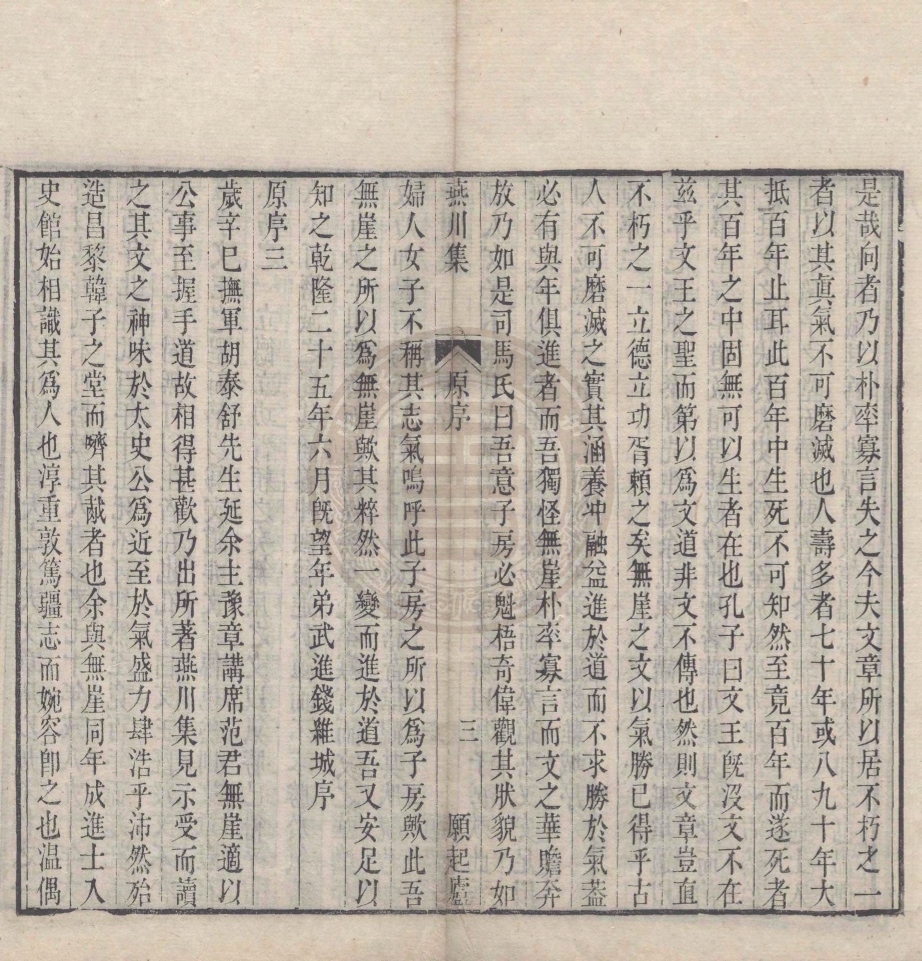 是哉向者乃以朴率寡言失之今夫文章所以居不朽之一
者以其眞氣不可磨滅也人壽多者七十年或八九十年大
抵百年止耳此百年中生死不可知然至竟百年而遂死者
其百年之中固無可以生者在也孔子曰文王旣沒文不在
茲乎文王之聖而第以爲文道非文不傳也然則文章豈直
不朽之一立德立功胥賴之矣無崖之文以氣勝已得乎古
人不可磨滅之實其涵養冲融益進於道而不求勝於氣葢
必有與年俱進者而吾獨怪無崖朴率寡言而文之華贍奔
放乃如是司馬氏曰吾意子房必魁梧奇偉觀其狀貌乃如
燕川集 原序 三 願起廬
婦人女子不稱其志氣嗚呼此子房之所以爲子房歟此吾
無崖之所以爲無崖歟其粹然一變而進於道吾又安足以
知之乾隆二十五年六月旣望年弟武進錢維城序
原序三
歲辛巳撫軍胡泰舒先生延余主豫章講席范君無崖適以
公事至握手道故相得甚歡乃出所著燕川集見示受而讀
之其文之神味於太史公爲近至於氣盛力肆浩乎沛然殆
造昌黎韓子之堂而嚌其胾者也余與無崖同年成進士入
史館始相識其爲人也淳重敦篤疆志而婉容卽之也温偶